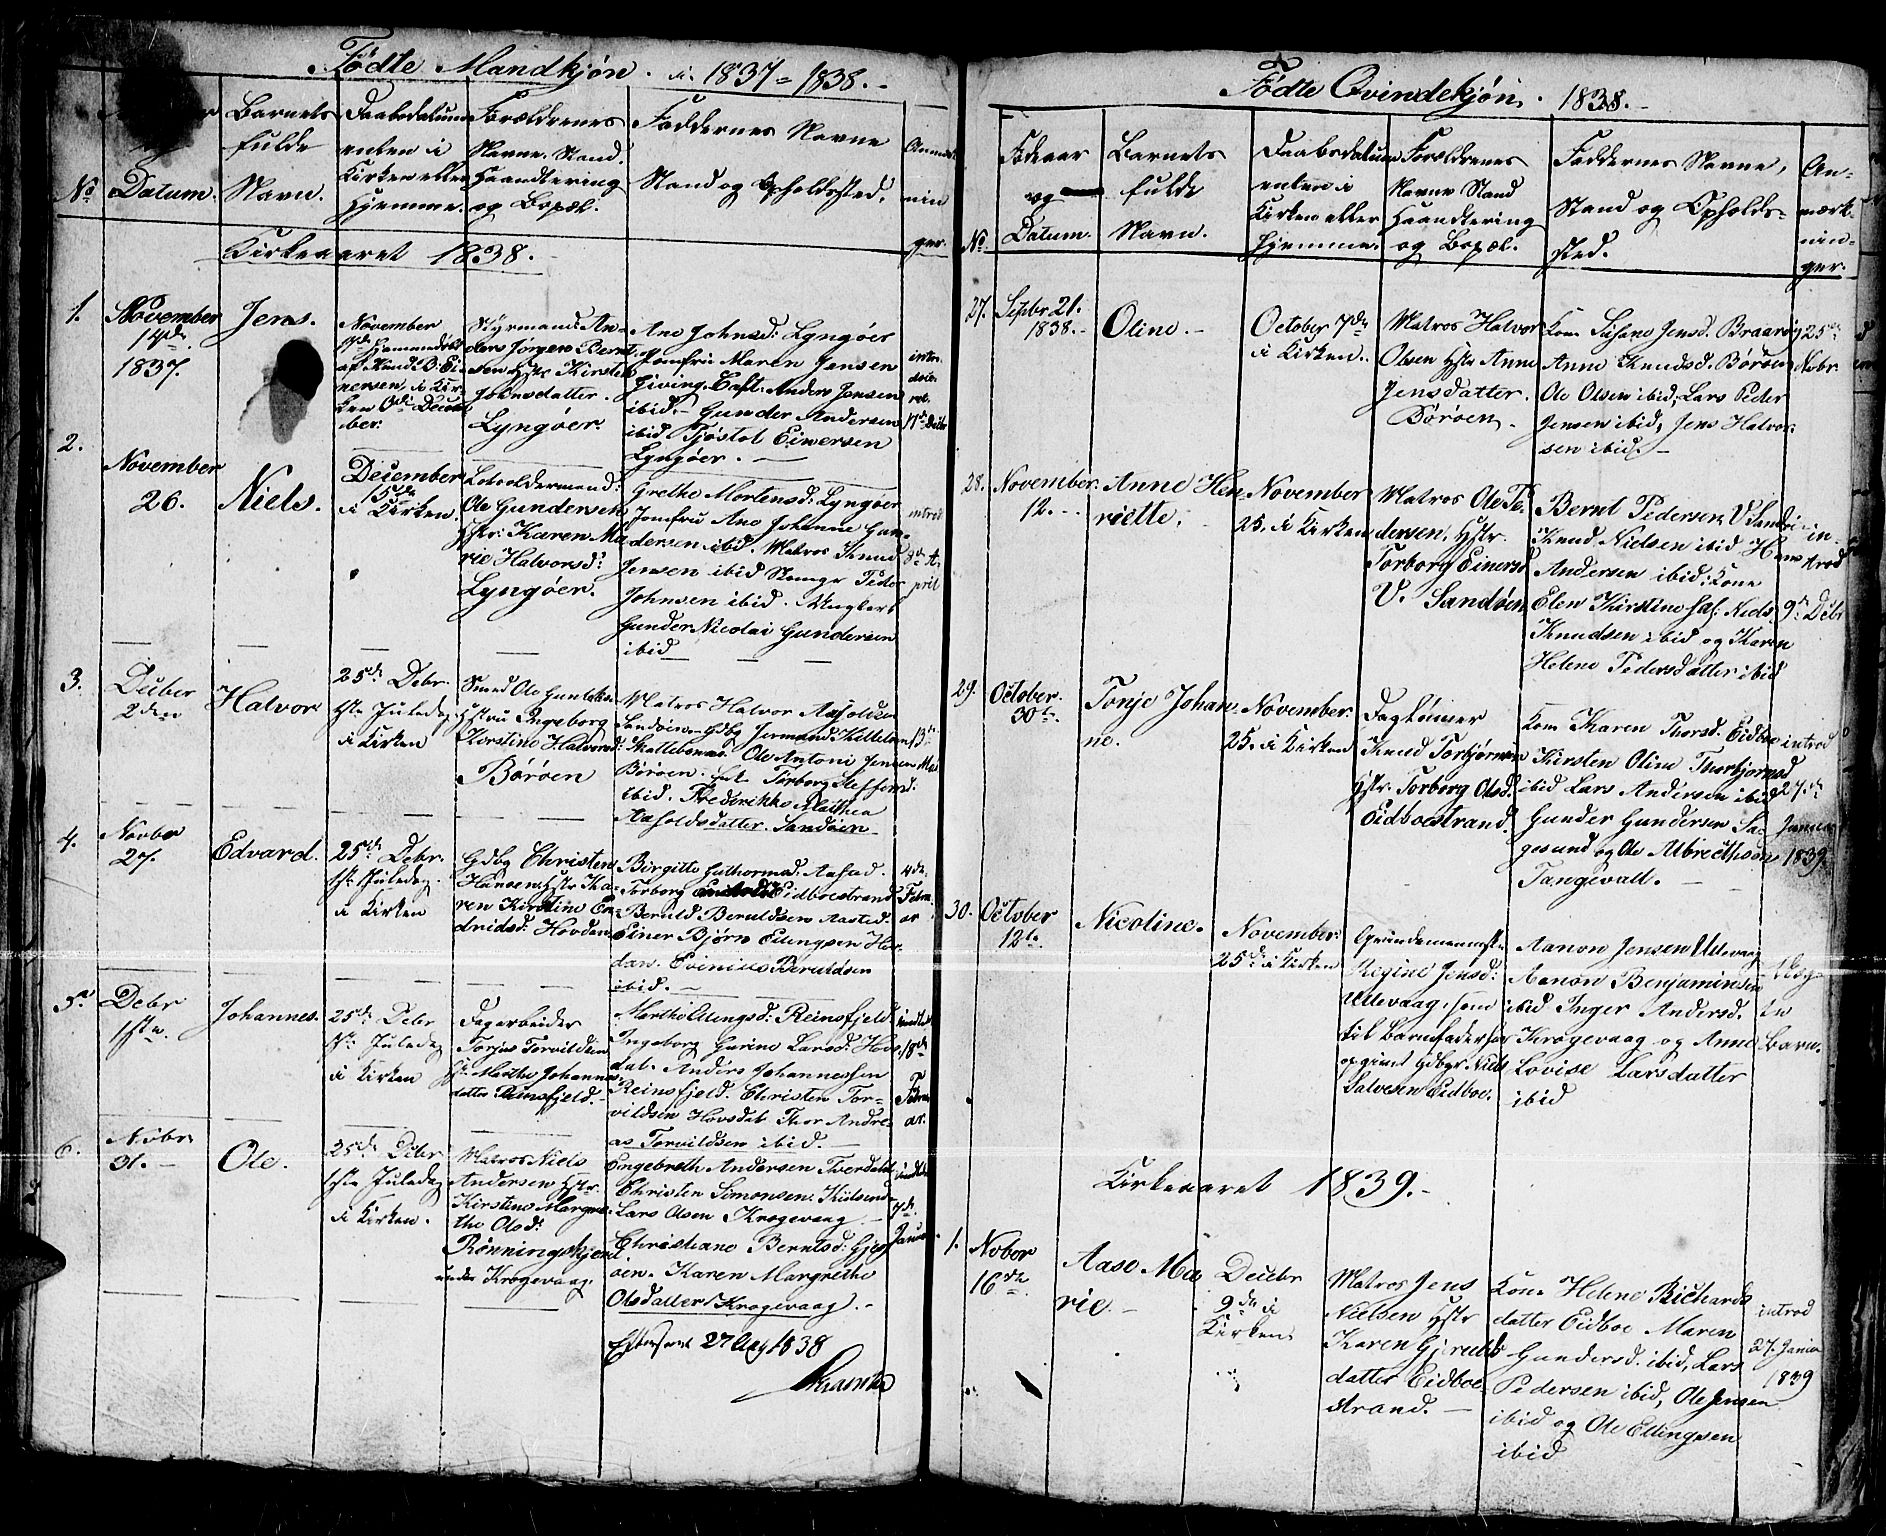 Fødte Mandkjøn. i 1837-1838.-
Barnets fulde Navn.
Daabsdatum enten i Kirken eller Hjemme.
Forældrenes Navne. Stand. Haandtering og Bopæl.
Faddernes Navne Stand og Opholdssted.
No
Datum.
Kirkeaaret 1838.
1.
November
14de
1837.
Jens.
November
Kirken
Styrmand An-
ders Jørgen Bernt-
sen Hstr Kirsten
Johnsdatter.
Lyngøer.
Ane Johnsd. Lyngøer
Jomfru Maren Jensen
Giving. Capt. Anders Jensen
ibid.- Gunder Andersen
ibid Tjøstol Einersen
Lyngøer.
2.
November
26.
Niels.
December
i Kirken
Ole Gundersen
Hstr: Karen Ma-
rie Halvorsd:
Lyngøer.
Grethe Mortensd: Lyngøer
Jomfru Ane Johanne Gun-
dersen ibid. Matros Knud
Jensen ibid Peder
Johnsen ibid. Ungkarl
Gunder Nicolai Gundersen
ibid
3.
Decber
2den
Halvor
25de Debr.
1ste Juledag
i Kirken
Smed Ole
Hstru Ingeborg
Kirstine Halvorsd:
Børøen
Matros Halvor
Sandøen. Gdbg Kittelsen
Ole Antoni Jensen
Børøen. Torborg Steffensd.
ibid. Frederikke Mathea
Aasholdsdatter. Sandøen.
4.
Novbr
27.
Edvard.
25de Debr.
1ste Juledag.
i Kirken
Gdbg Christen
Hansen, Hstr Ka-
ren Kirstine En-
dridsd: Hovden
Birgitte Guthormsd:
Torborg Eidboestrand
Beruld Beruldsen Aasted.
Einer Bjørn Ellingsen Hov-
dan. Evinius Beruldsen
ibid.
4de
Februar
5.
Debr
1ste.
Johannes.
25de Debr
1ste Juledag
i Kirken
Dagarbeider
Torjus Torvildsen
Marthe Johannes-
datter Reinsfjeld.
Marthe Ellingsd: Reinsfjeld
Ingeborg Gurine Larsd: Hovs-
dal. Anders Johannessen
Reinsfjeld. Christen Tor-
vildsen Hovsdal Thor Andre-
as Torvildsen ibid.
18de
Februar.
6.
Nvbr.
31.
Ole.
25de Debr
1ste Juledag
i Kirken.
Matros Niels
Andersen Hstr.
Kirstine Margre-
the Olsd:
Rønningskjen
under Krogevaag.
Engebreth Andersen Tverdal
Christen Simonsen
Lars Olsen Krogevaag
Christiane Berntsd: Gjes-
øen. Karen Margrethe
Olsdatter Krogevaag.
7de
Januar
27 Aug 1838
Fødte Qvindekjøn. 1838.
No
Fødeaar og Datum.
Barnets fulde Navn.
Daabsdatum enten i Kirken eller Hjemme.
Forældrenes Navne Stand Haandtering og Bopæl.
Faddernes Navne, Stand og Opholds-sted.
An-mærk-nin-ger.
27.
Septbr. 21.
1838.
Oline.
October 7de
i Kirken.
Matros Halvor
Olsen Hstr Anne
Jensdatter.
Børøen.
Kone Jensd. Braarøy
Anne Knudsd. Børøen
Ole Olsen ibid, Lars Peder
Jensen ibid, Jens Halvor-
sen ibid.
25de
Nvbr
28.
November.
12.
Anne Hen
riette.
November
25. i Kirken
Matros Ole Pe-
dersen, Hstr.
Torborg Einersd
V. Sandøen
Bernt Pedersen V Sandø
Knud Nielsen ibid Hans
Andersen ibid, Kone
Elen Kirstine Niels
Knudsen ibid og Karen
Helene Pedersdatter ibid
in-
trod
9de Debr
29.
October.
30te.
Tonje Johan
ne.
November.
25. i Kirken
Daglønner
Knud Torbjørnsen
Hstr. Torborg Olsd.
Eidboestrand.
Kone Karen Thorsd. Eidboe
Kirsten Oline Thorbjørnsd
ibid Lars Andersen ibid
Gunder Gundersen Sa-
gesund og Ole Albrecthson
Tangevall.
introd
27de
Januar
1839
30.
October
12te
Nicoline.
November.
25de i Kirken
Regine Jensd:
Udevaag, som
til Barnefader har
opgivet Gdbgr Niels
Salvesen Eidboe.
Aanon Jensen Udevaag
Aanon Benjaminsen
ibid Inger Andersd.
Krogevaag og Anne
Lovise Larsdatter
ibid
Uægte
Barn.
Kirkeaaret 1839.
1.
Nvbr
16de
Aase Ma
rie.
Decbr
9de i
Kirken.
Matros Jens
Nielsen Hstr
Karen Gjeruld
datter Eidboe-
strand.
Kone Helene Richards
datter Eidboe Maren
Gundersd. ibid, Lars
Pedersen ibid, Ole Jensen
ibid og Ole Ellingsen
ibid
introd
27. Januar
1839